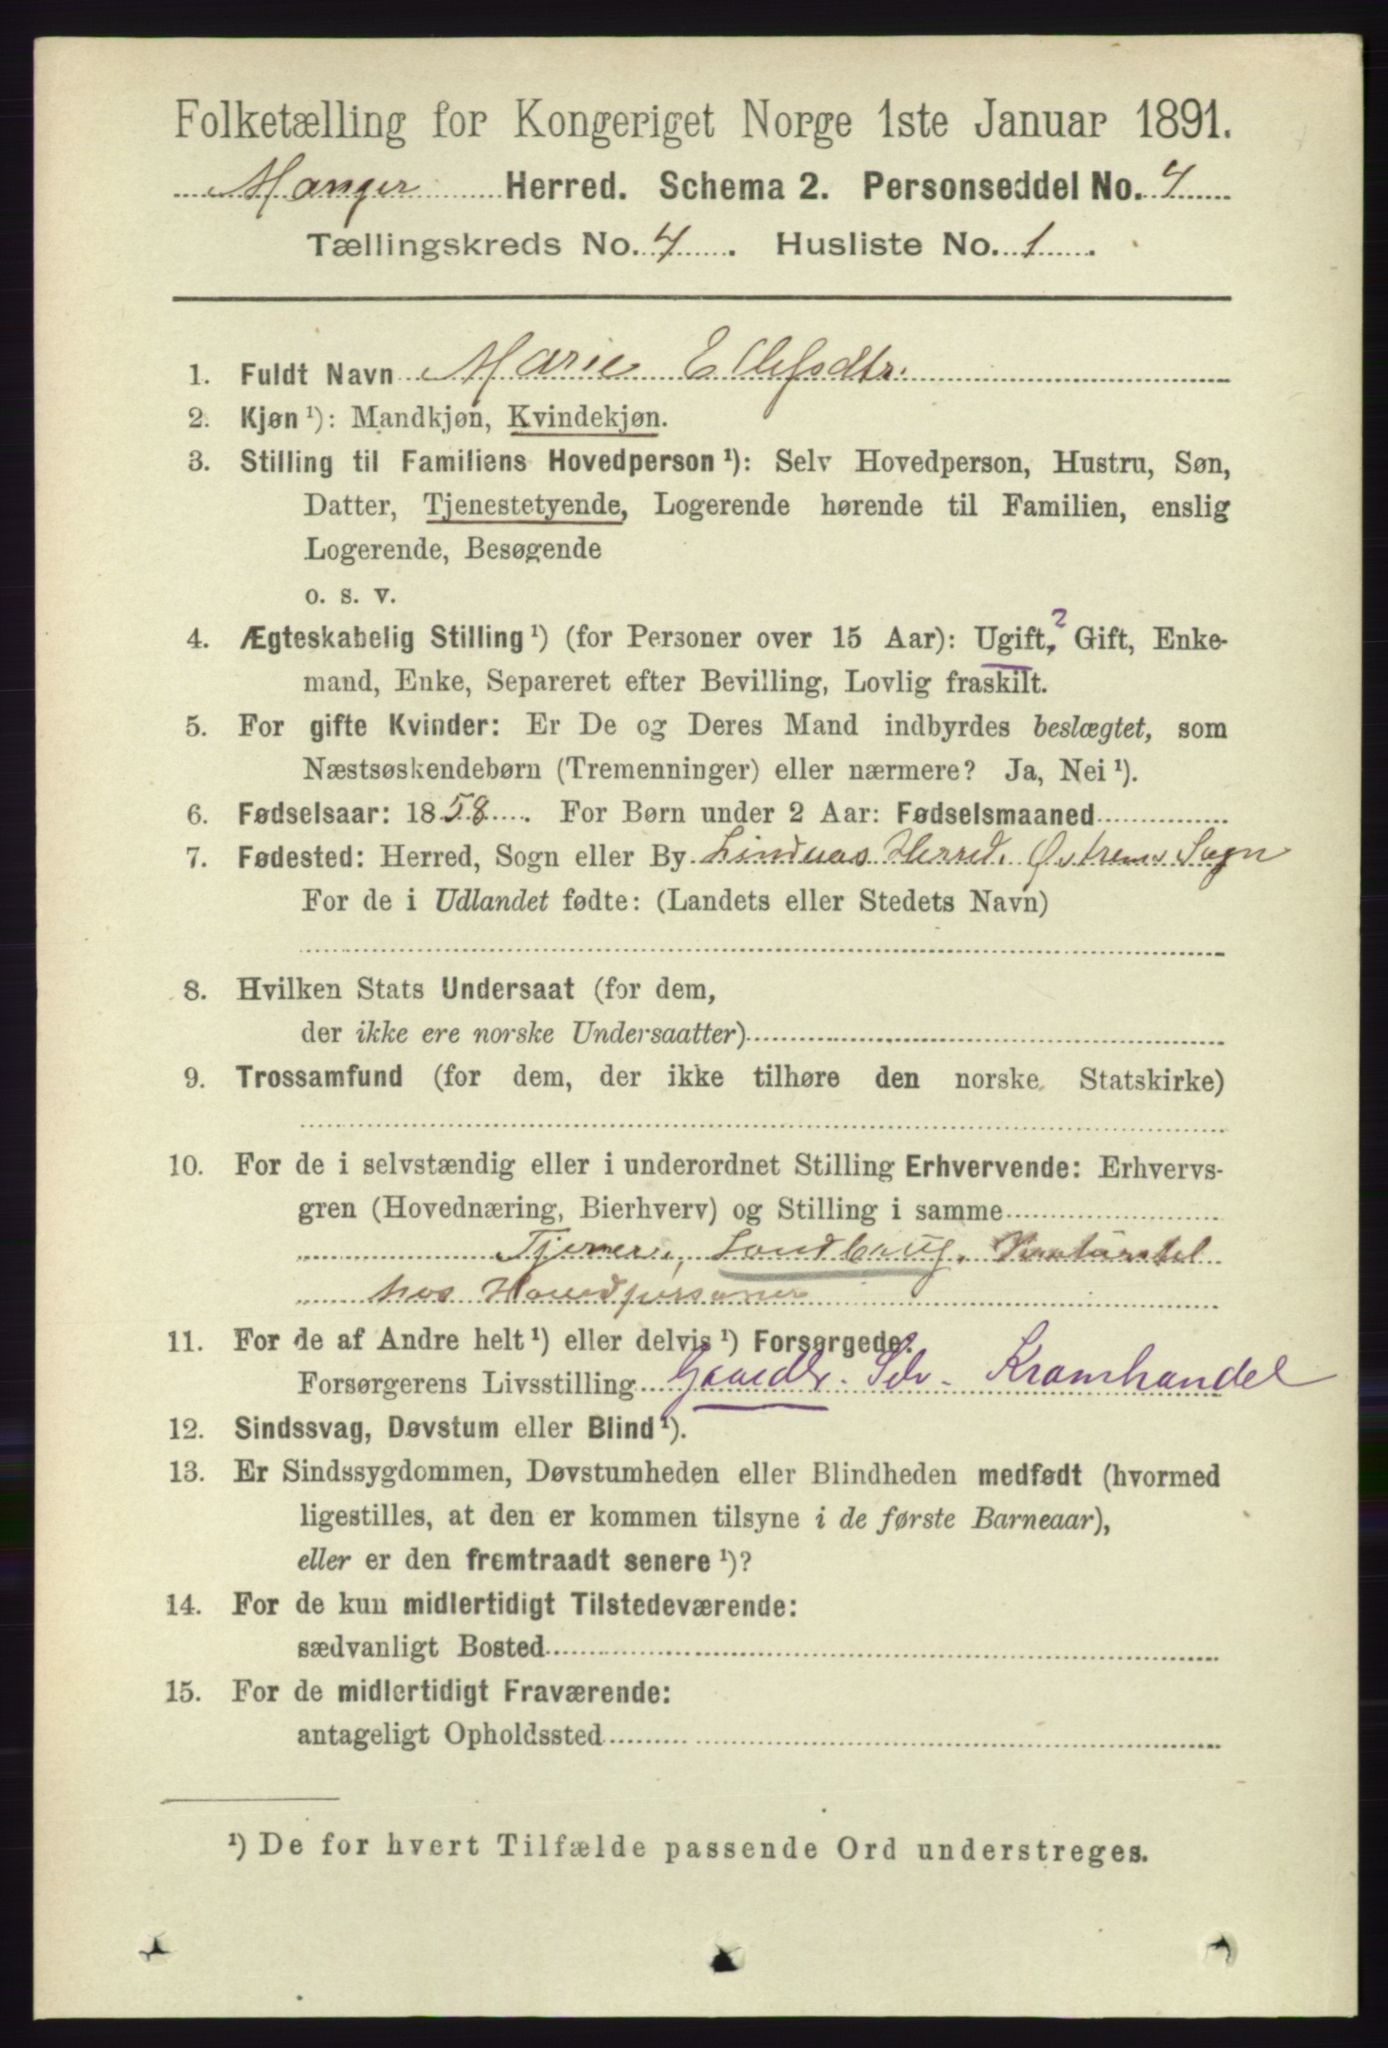 Folketælling for Kongeriget Norge 1ste Januar 1891.
Manger Herred. Schema 2. Personseddel No. 4
Tællingskreds No. 4. Husliste No. 1.
1. Fuldt Navn Marie Ellefsdtr.
2. Kjøn ¹): Mandkjøn, Kvindekjøn.
3. Stilling til Familiens Hovedperson ¹): Selv Hovedperson, Hustru, Søn,
Datter, Tjenestetyende, Logerende hørende til Familien, enslig
Logerende, Besøgende
o. s. v.
4. Ægteskabelig Stilling ¹) (for Personer over 15 Aar): Ugift, ? Gift, Enke-
mand, Enke, Separeret efter Bevilling, Lovlig fraskilt.
5. For gifte Kvinder: Er De og Deres Mand indbyrdes beslægtet, som
Næstsøskendebørn (Tremenninger) eller nærmere? Ja, Nei ¹).
6. Fødselsaar: 1858. For Børn under 2 Aar: Fødselsmaaned
7. Fødested: Herred, Sogn eller By Lindaas Herred. Østrems Sogn
For de i Udlandet fødte: (Landets eller Stedets Navn)
8. Hvilken Stats Undersaat (for dem,
der ikke ere norske Undersaatter)
9. Trossamfund (for dem, der ikke tilhøre den norske Statskirke)
10. For de i selvstændig eller i underordnet Stilling Erhvervende: Erhvervs-
gren (Hovednæring, Bierhverv) og Stilling i samme
Tjener, Landbrug,
hos Hovedpersonen
11. For de af Andre helt ¹) eller delvis ¹) Forsørgede:
Forsørgerens Livsstilling Gaardbr. Selv. Kramhandel
12. Sindssvag, Døvstum eller Blind ¹).
13. Er Sindssygdommen, Døvstumheden eller Blindheden medfødt (hvormed
ligestilles, at den er kommen tilsyne i de første Barneaar),
eller er den fremtraadt senere ¹)?
14. For de kun midlertidigt Tilstedeværende:
sædvanligt Bosted
15. For de midlertidigt Fraværende:
antageligt Opholdssted
¹) De for hvert Tilfælde passende Ord understreges.